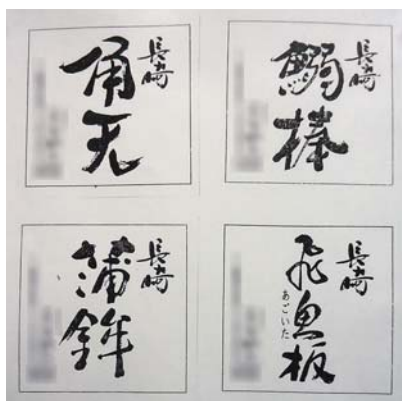 長崎
角天
長崎
鰯棒
長崎
蒲鉾
長崎
飛魚板
あごいた